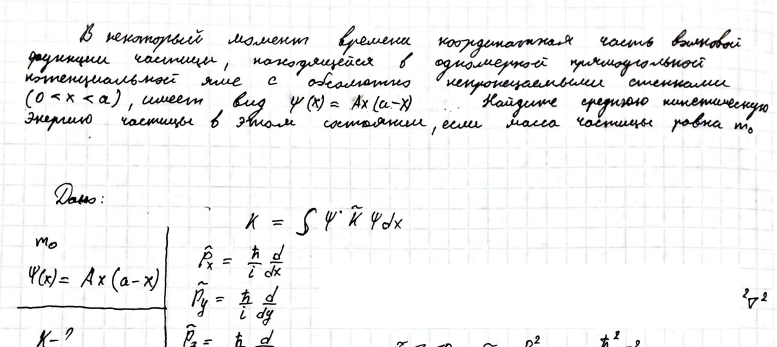 В некоторый момент времени координатная часть волновой
функции частицы, находящейся в одномерной прямоугольной
потенциальной яме с абсолютно непроницаемыми стенками
(0 < x < a), имеет вид ψ(x) = Ax(a-x) .. Найдите среднюю кинетическую
энергию частицы в этом состоянии, если масса частицы равна m₀
Дано:
K = ∫ ψ* K̂ ψ dx
m₀
p̂ₓ = ħ/i d/dx
ψ(x) = Ax(a-x)
p̂ᵧ = ħ/i d/dy
²∇²
K-?